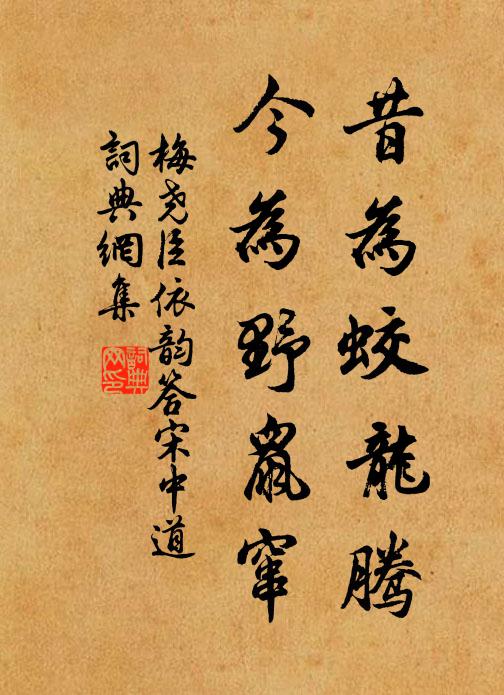 昔為蛟龍騰
今為野鼠竄
梅堯臣依韵答宋中道
詞典網集
詞典网印